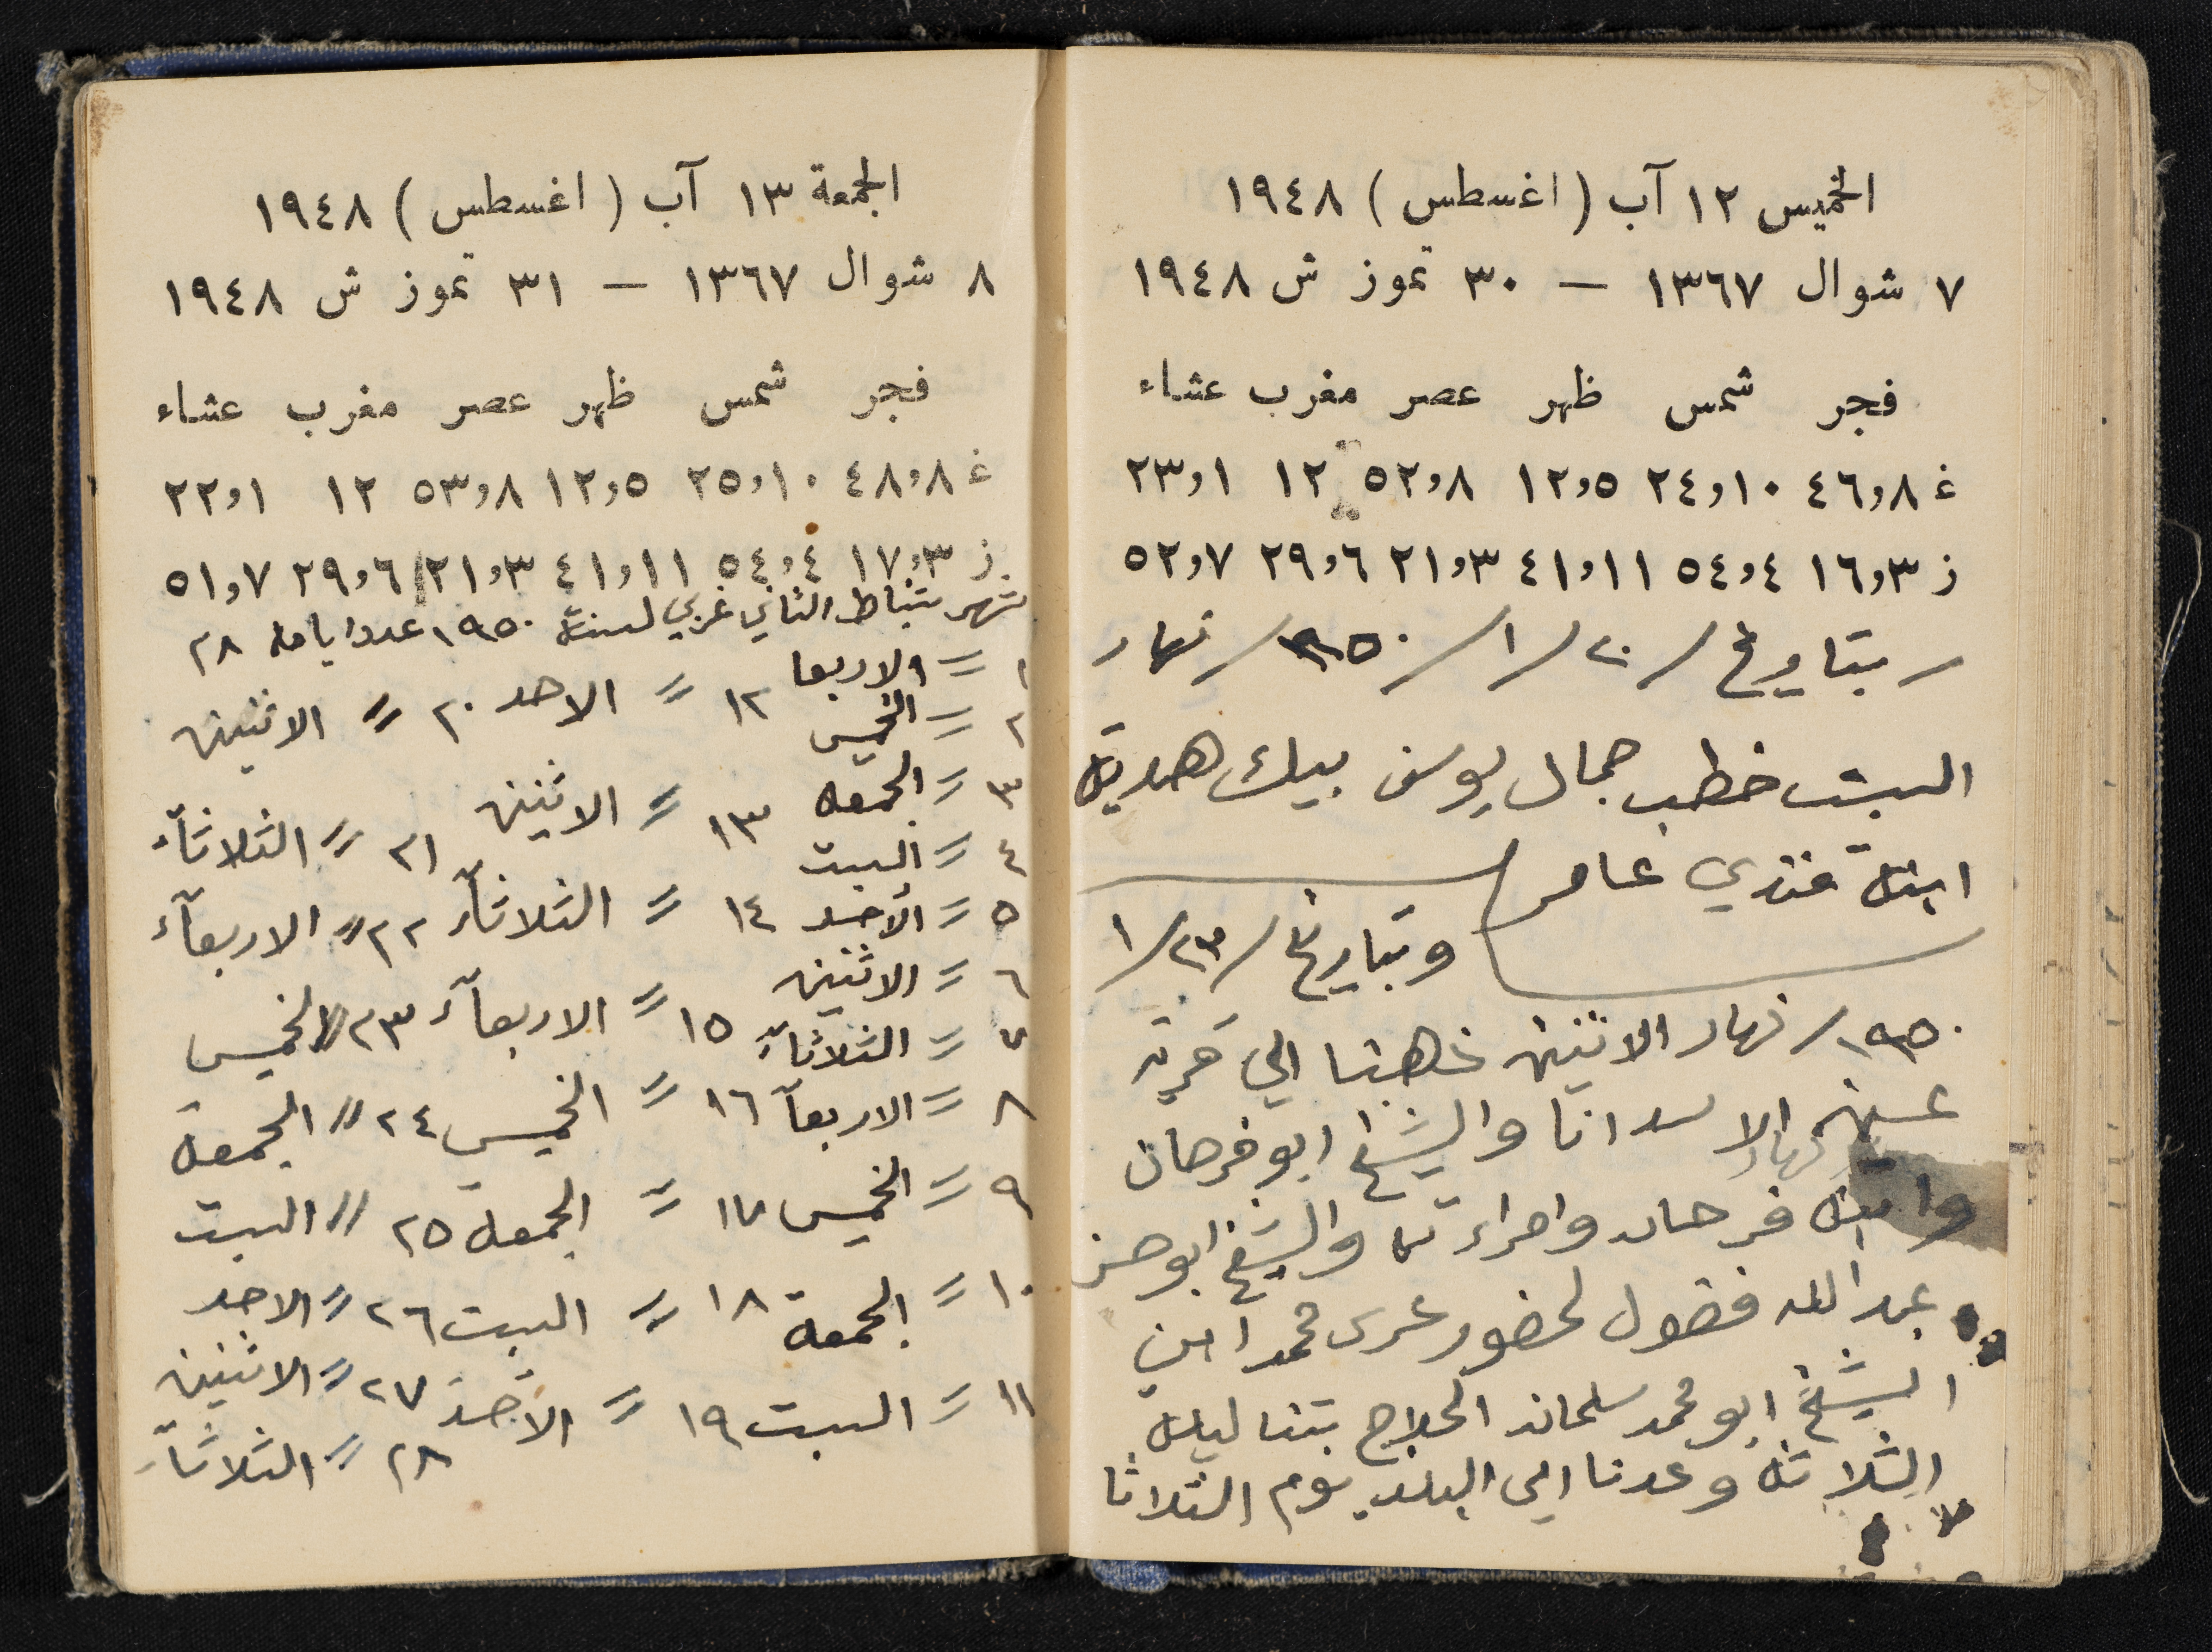 الخميس ١٢ آب (اغسطس) ١٩٤٨
٧ شوال ١٣٦٧ — ٣٠ تموز ش ١٩٤٨
فجر شمس ظهر عصر مغرب عشاء
غ ٤٦٫٨ ٢٤٫١٠ ١٢٫٥ ٥٢٫٨ ١٢ ٢٣٫١
ز ١٦٫٣ ٥٤٫٤ ٤١٫١١ ٢١٫٣ ٢٩٫٦ ٥٢٫٧
بتاريخ /٢٠/ ١/ ٩٥٠/ نهار
السبت خطب جمال يوسف بيك هديه
ابنة فندي عامر
وبتاريخ /٢٣/ ١
١٩٥٠/ نهار الاثنين ذهبنا الي قرية
عين الاسد انا والشيخ ابو فرحان
وابنه فرحان وامراءته والشيخ ابو حسن
عبدالله فضول لحضور عرس محمد ابن
الشيخ ابو محمد سلمان الحلاج بتنا ليلة
الثلاثه وعدنا الي البلد يوم الثلاثا
الجمعة ١٣ آب (اغسطس) ١٩٤٨
٨ شوال ١٣٦٧ — ٣١ تموز ش ١٩٤٨
فجر شمس ظهر عصر مغرب عشاء
غ ٤٨٫٨ ٢٥٫١٠ ١٢٫٥ ٥٣٫٨ ١٢ ٢٢٫١
ز ١٧٫٣ ٥٤٫٤ ٤١٫١١ ٢١٫٣ ٢٩٫٦ ٥١٫٧
شهر شباط الثاني غربي لسنة ١٩٥٠ عدد ايامه ٢٨
١ = الاربعا
٢ = الخميس ١٢ = الاحد ٢٠ = الاثنين
٣ = الجمعه ١٣ = الاثنين ٢١ = الثلاثآء
٤ = السبت
٥ = الأحد ١٤ = الثلاثآء ٢٢ = الاربعآء
٦ = الاثنين
٧ = الثلاثآء ١٥ = الاربعآء ٢٣ = الخميس
٨ = الاربعآ ١٦ = الخميس ٢٤ = الجمعة
٩ = الخميس ١٧ = الجمعه ٢٥ = السبت
١٠ = الجمعة ١٨ = السبت ٢٦ = الاحد
١١ = السبت ١٩ = الأحد ٢٧ = الاثنين
٢٨ = الثلاثآء